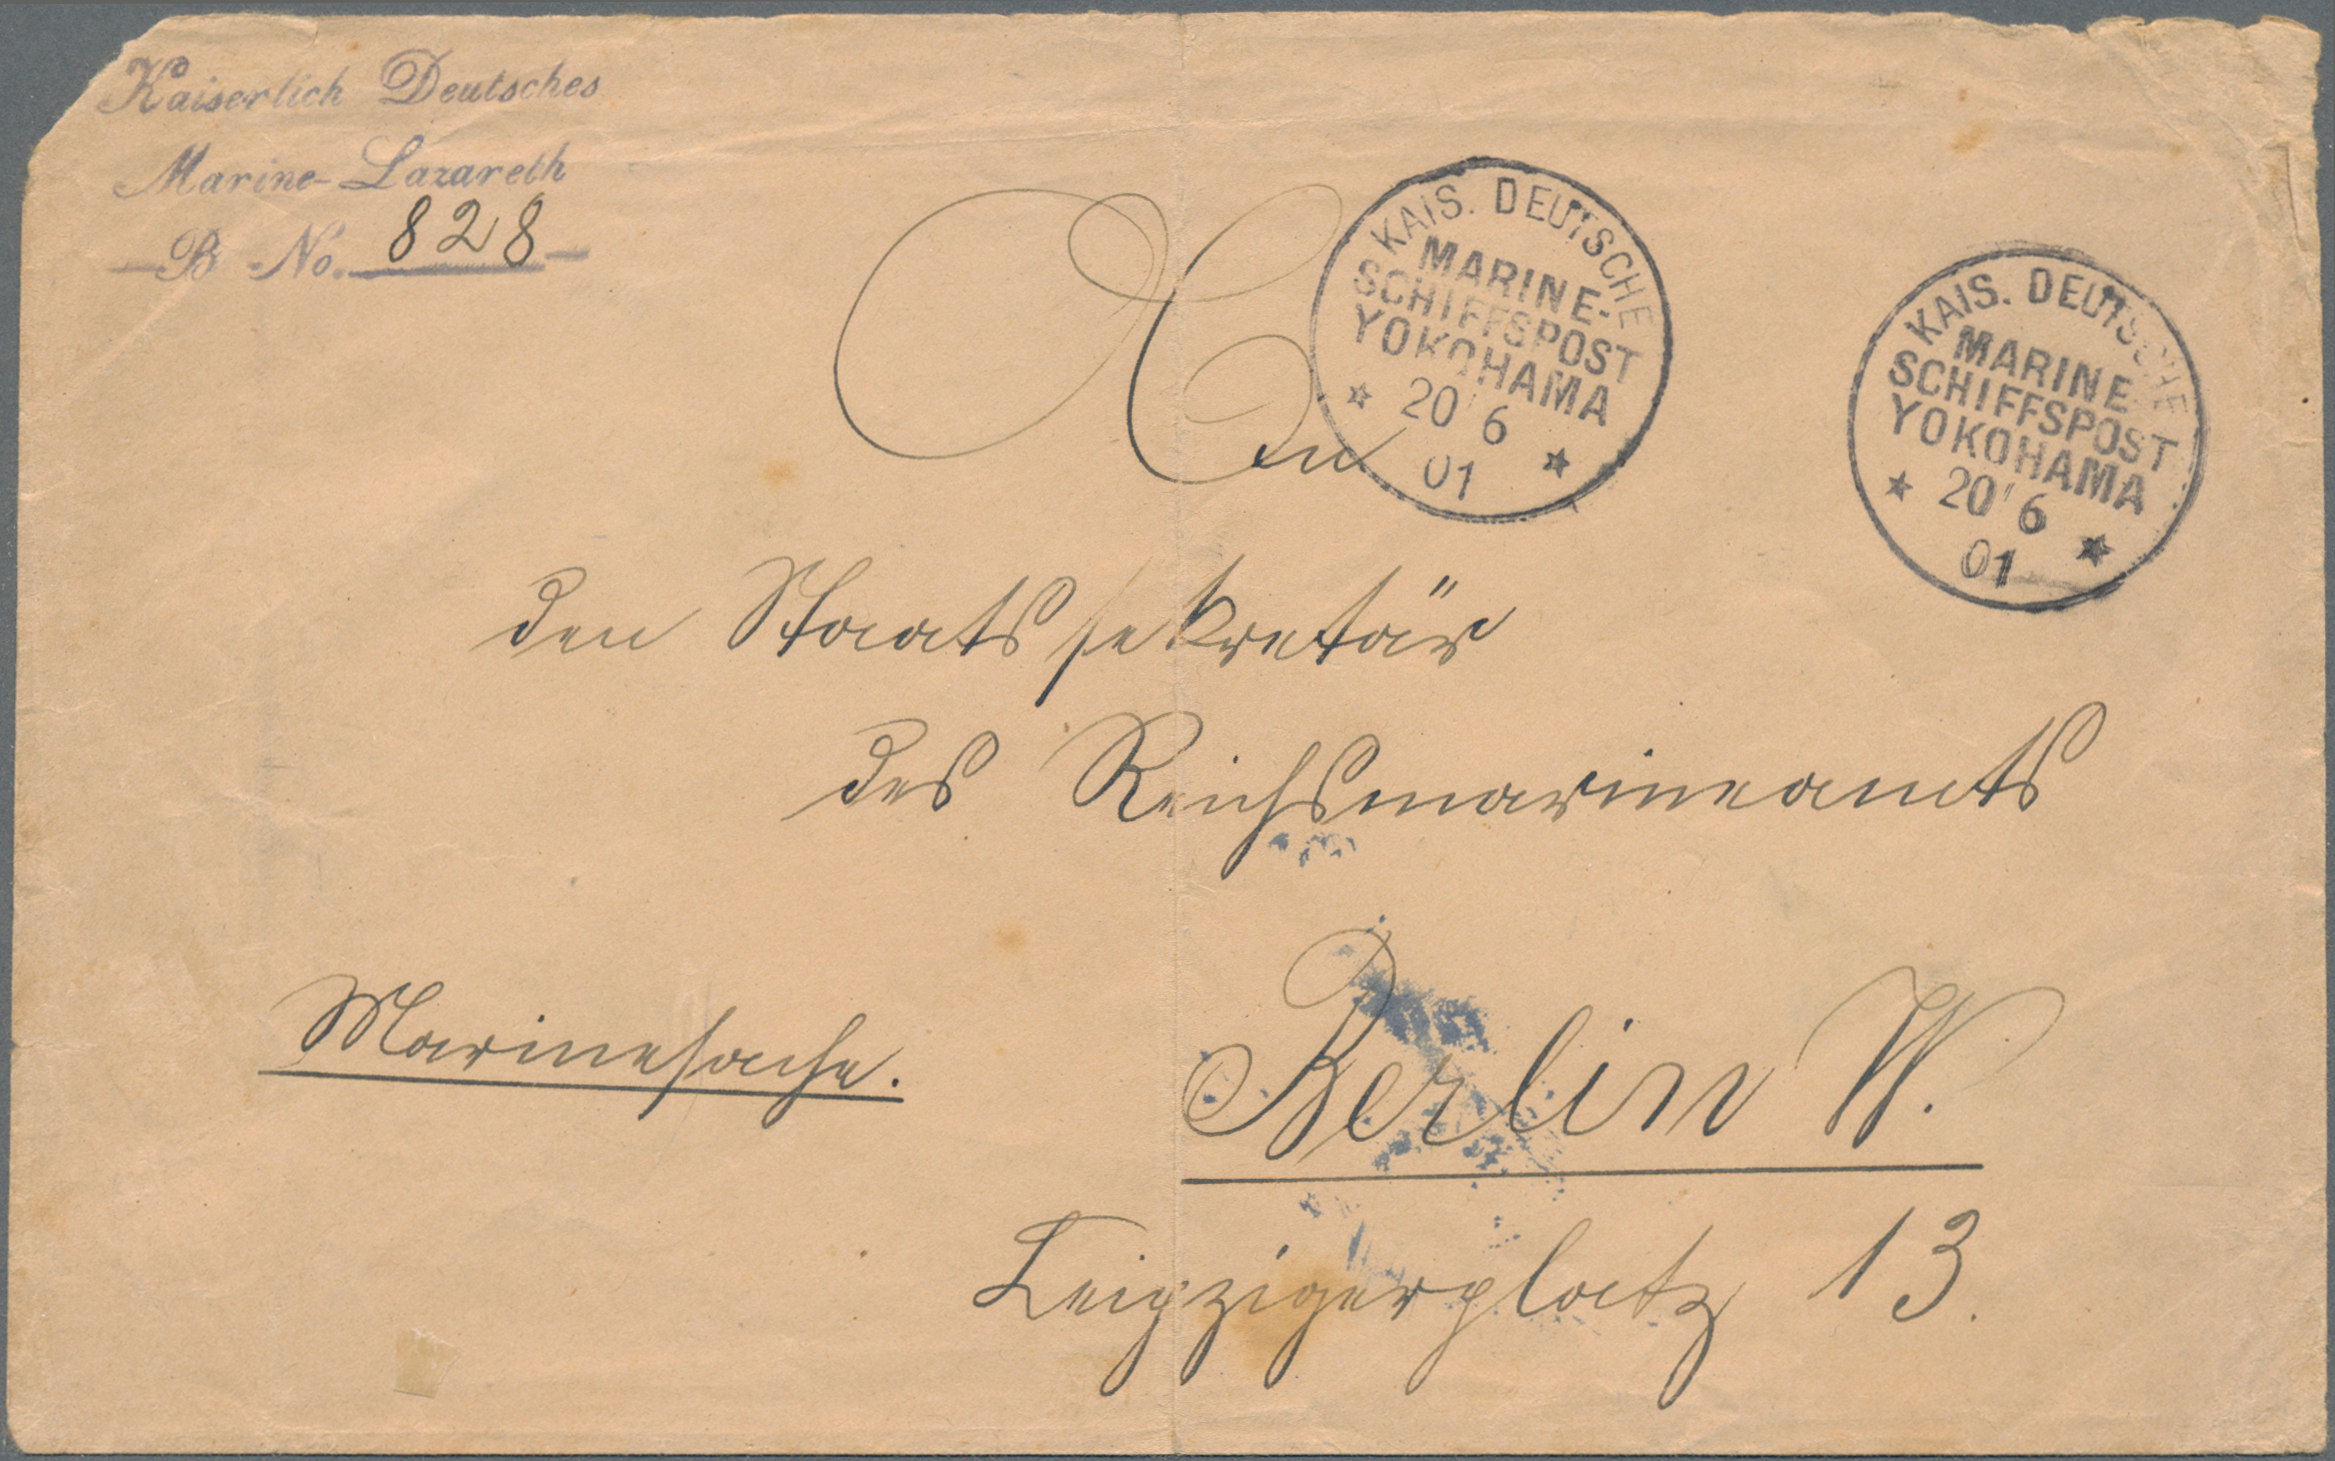 Kaiserlich Deutsches
Marine-Lazareth
B No. 828
KAIS. DEUTSCHE
MARINE-
SCHIFFSPOST
YOKOHAMA
20 6
01
KAIS. DEUTSCHE
MARINE-
SCHIFFSPOST
YOKOHAMA
20 6
01
An
den Staatssekretär
des Reichsmarineamts
Marinesache.
Berlin W.
Leipzigerplatz 13.